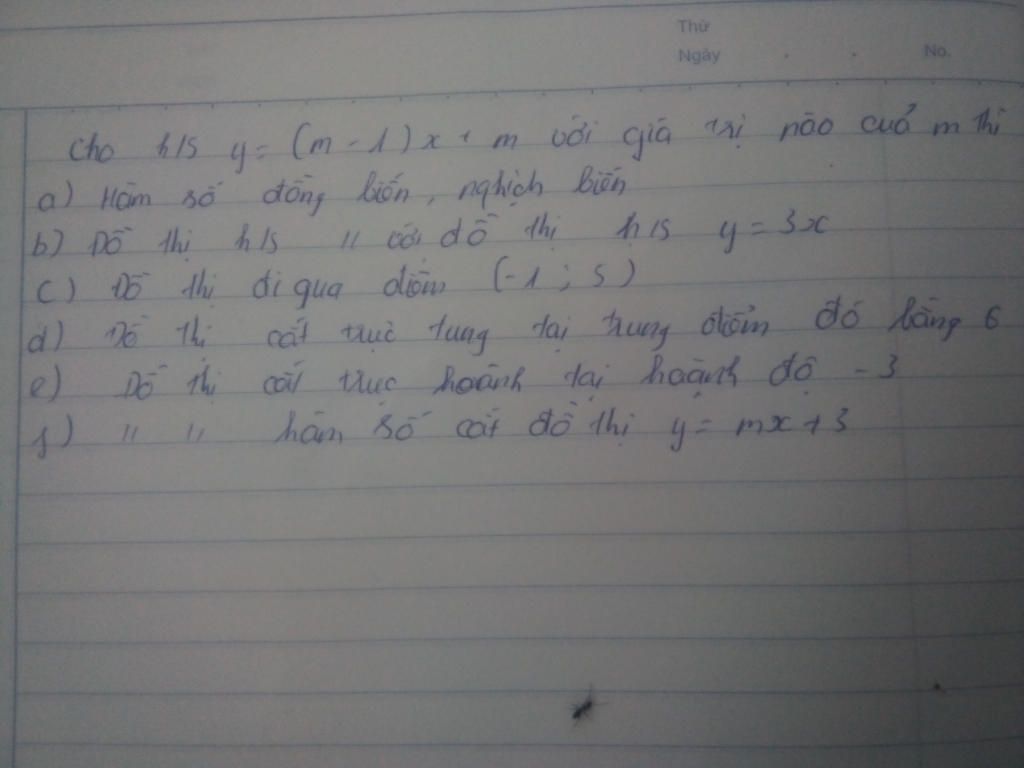 Thứ
Ngày . . No.
Cho h/s y = (m - 1)x + m với giá trị nào cuả m thì
a) Hàm số đồng biến, nghịch biến
b) Đồ thị h/s // với đồ thị h/s y = 3x
c) Đồ thị đi qua điểm (-1 ; 5)
d) Đồ thị cắt trục tung tại trung điểm đó bằng 6
e) Đồ thị cắt trục hoành tại hoành độ -3
f) " " hàm số cắt đồ thị y = mx + 3